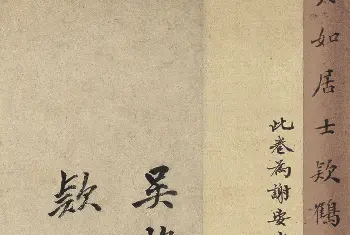 如居士欵鶴
此卷為謝安
吳
欵